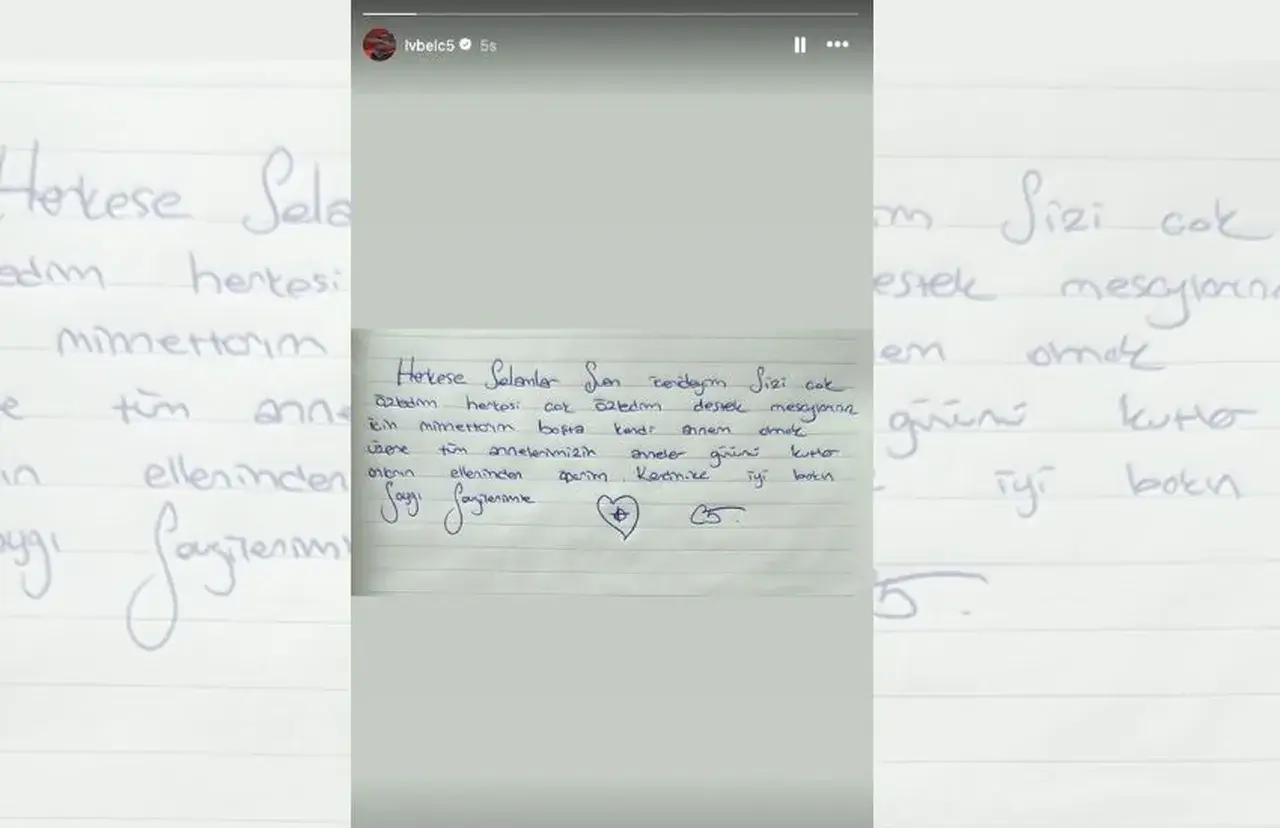 lvbelc5 5s
Herkese Selamlar Ben icerdeyim Sizi cok
özledim herkesi cok özledim destek mesajlarınız
için minnettarım başta kendi annem olmak
üzere tüm annelerimizin anneler gününü kutlar
onların ellerinden öperim. Kendinize iyi bakın
Saygı Sevgilerimle C5.